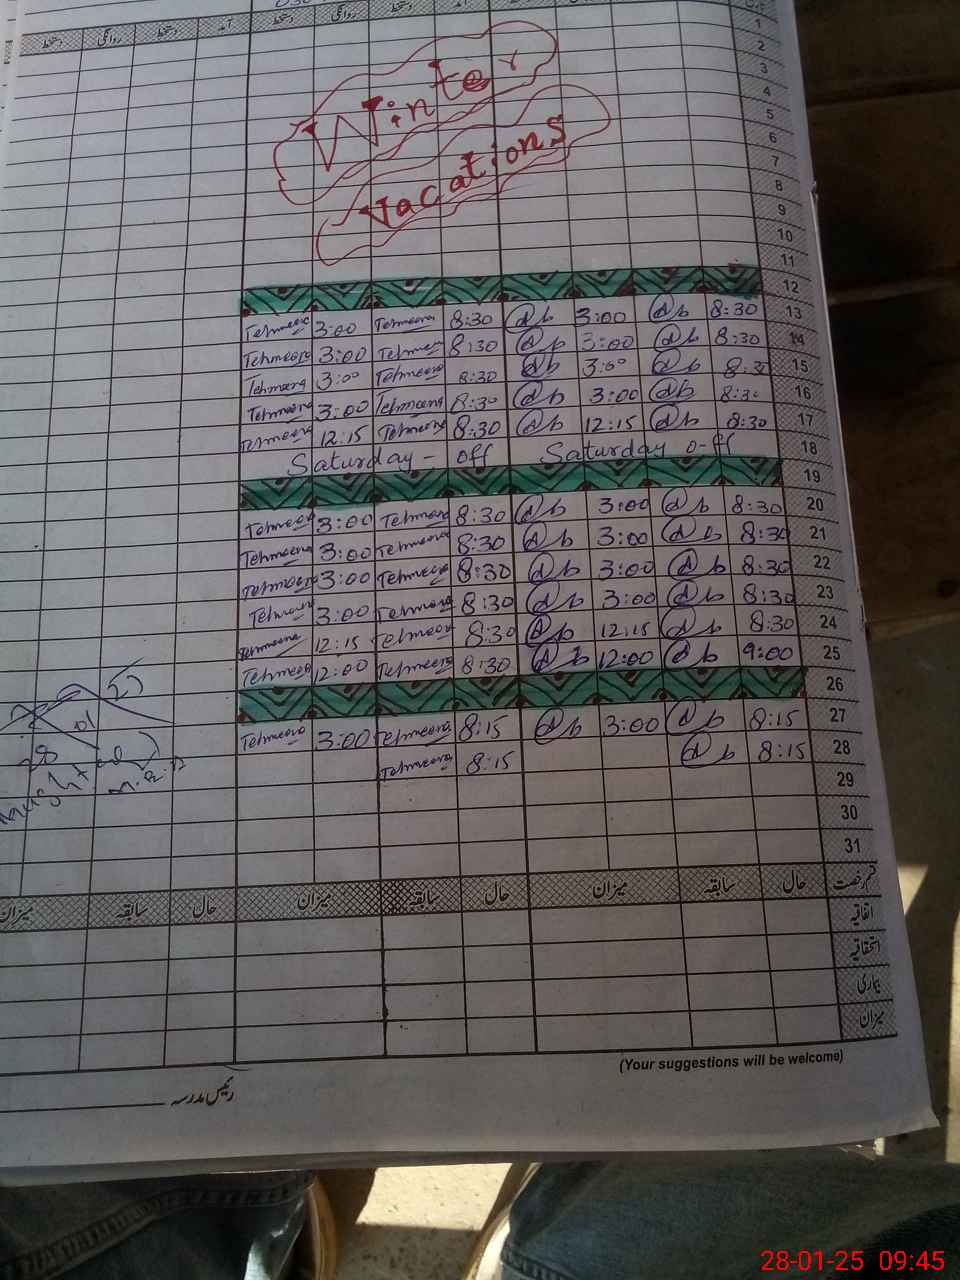 دستخط روانگی دستخط آمد دستخط روانگی دستخط آمد
1
2
3
4
5
6
7
8
9
10
11
12
Winter
Vacations
Tehmeena 3:00 Tehmeena 8:30 @b 3:00 @b 8:30 13
Tehmeena 3:00 Tehmeena 8:30 @b 3:00 @b 8:30 14
Tehmeena 3:00 Tehmeena 8:30 @b 3:00 @b 8:30 15
Tehmeena 3:00 Tehmeena 8:30 @b 3:00 @b 8:30 16
Tehmeena 12:15 Tehmeena 8:30 @b 12:15 @b 8:30 17
Saturday - off Saturday off 18
19
Tehmeena 3:00 Tehmeena 8:30 @b 3:00 @b 8:30 20
Tehmeena 3:00 Tehmeena 8:30 @b 3:00 @b 8:30 21
Tehmeena 3:00 Tehmeena 8:30 @b 3:00 @b 8:30 22
Tehmeena 3:00 Tehmeena 8:30 @b 3:00 @b 8:30 23
Tehmeena 12:15 Tehmeena 8:30 @b 12:15 @b 8:30 24
Tehmeena 12:00 Tehmeena 8:30 @b 12:00 @b 9:00 25
26
Tehmeena 3:00 Tehmeena 8:15 @b 3:00 @b 8:15 27
Tehmeena 8:15 @b 8:15 28
29
30
31
قسم رخصت حال سابقہ میزان حال سابقہ میزان حال سابقہ میزان
اتفاقیہ
استحقاقیہ
بیماری
میزان
(Your suggestions will be welcome)
رئیس مدرسہ
28-01-25 09:45